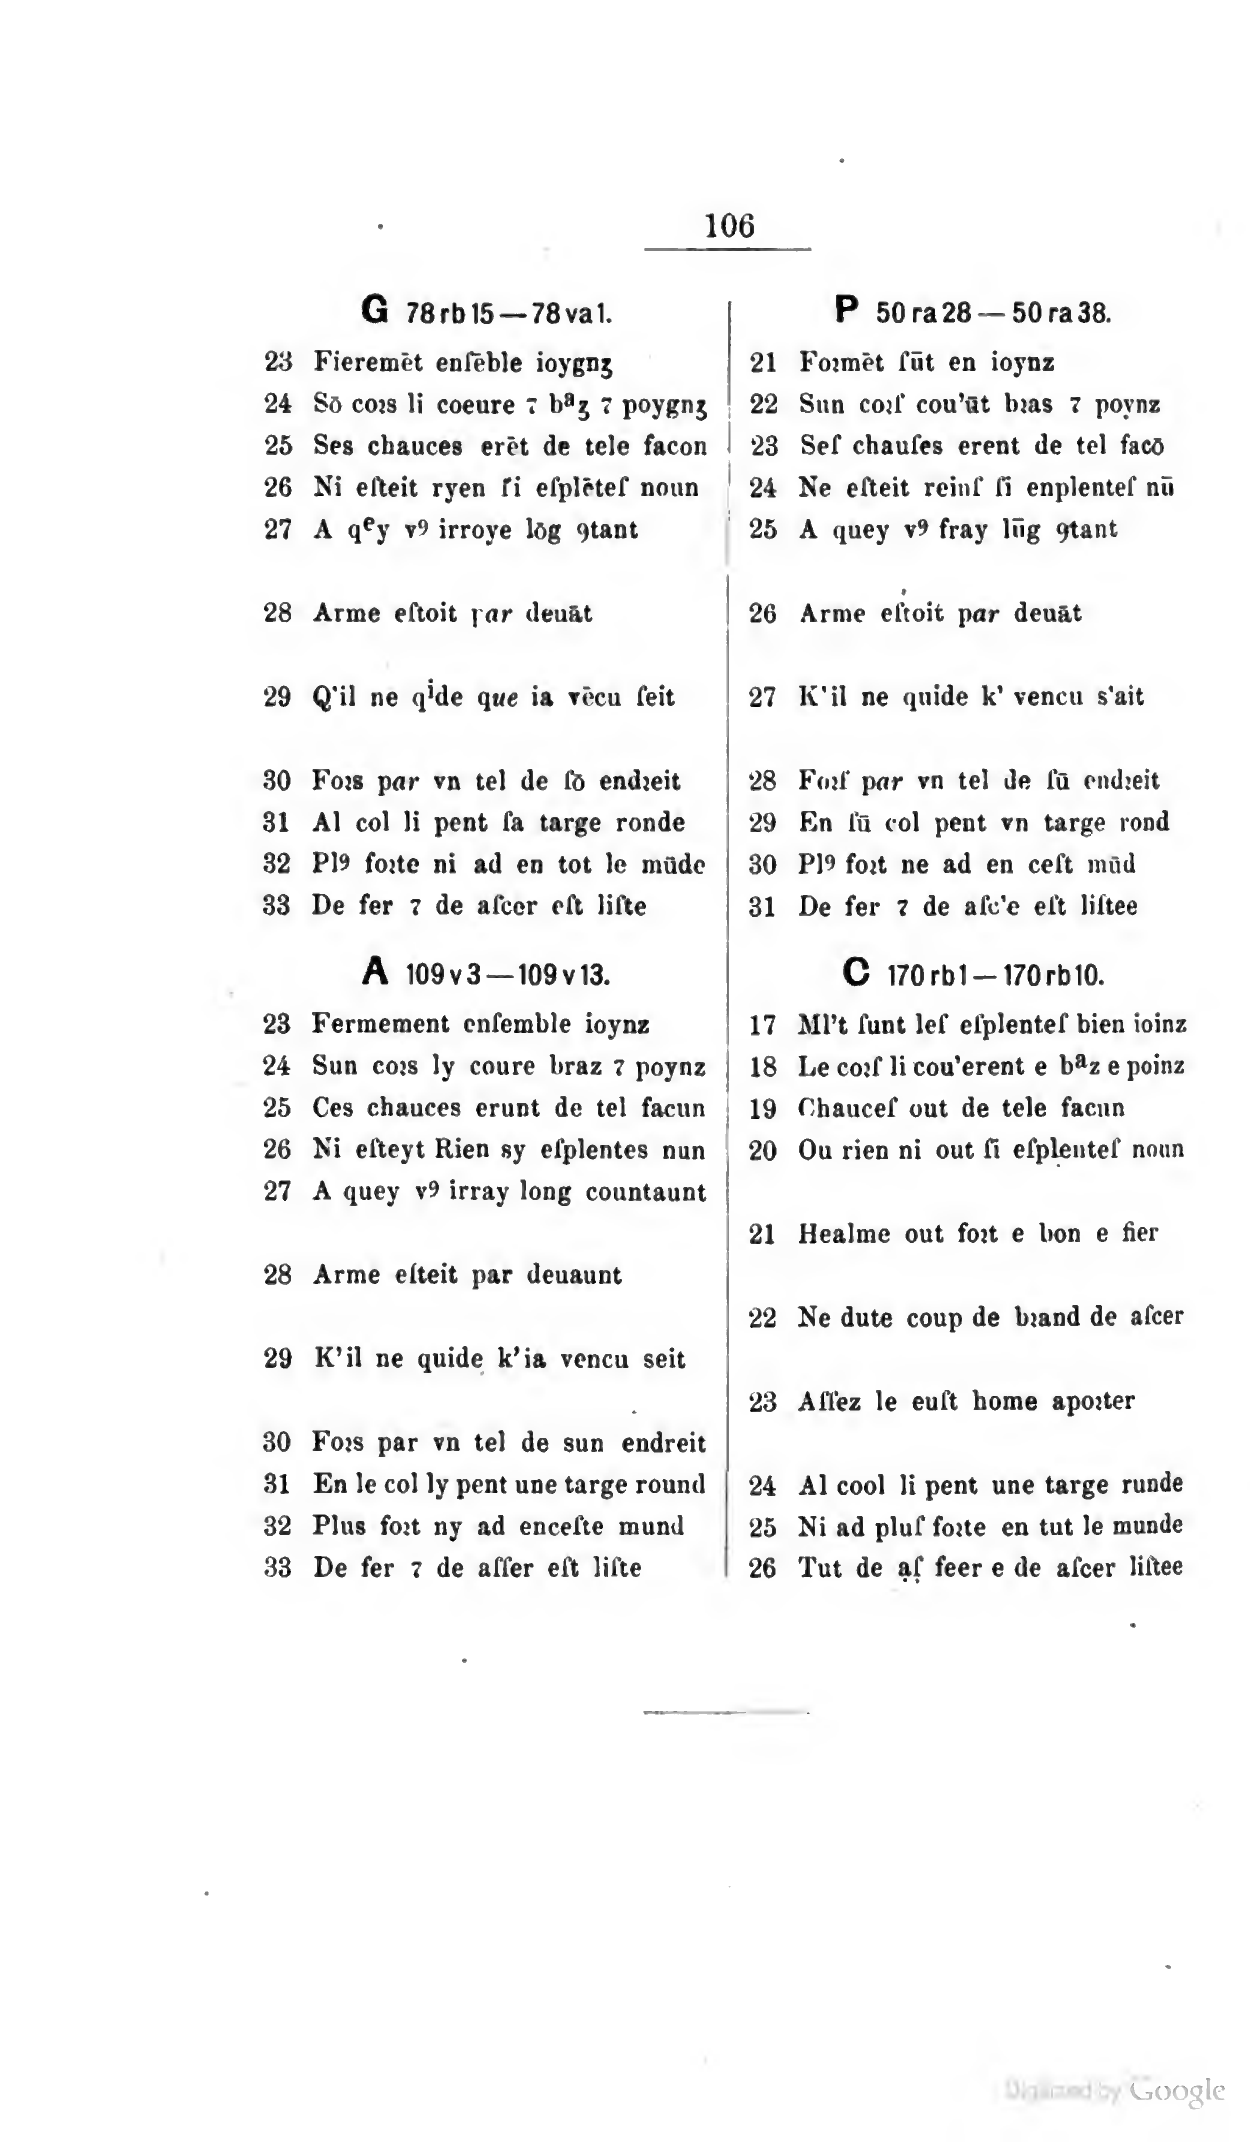 106
G 78 rb 15 — 78 va 1.
23 Fieremēt enſēble ioygnʒ
24 Sō coꝛs li coeure ⁊ bᵃʒ ⁊ poygnʒ
25 Ses chauces erēt de tele facon
26 Ni eſteit ryen ſi eſplēteſ noun
27 A qᵉy v⁹ irroye lōg ꝯtant
28 Arme eſtoit par deuāt
29 Q'il ne qⁱde que ia vēcu ſeit
30 Foꝛs par vn tel de ſō endꝛeit
31 Al col li pent ſa targe ronde
32 Pl⁹ foꝛte ni ad en tot le mūde
33 De fer ⁊ de aſcer eſt liſte
P 50 ra 28 — 50 ra 38.
21 Foꝛmēt ſūt en ioynz
22 Sun coꝛſ cou'ūt bꝛas ⁊ poynz
23 Seſ chauſes erent de tel facō
24 Ne eſteit reinſ ſi enplenteſ nū
25 A quey v⁹ fray lūg ꝯtant
26 Arme eſtoit par deuāt
27 K'il ne quide k' vencu s'ait
28 Foꝛſ par vn tel de ſū endꝛeit
29 En ſū col pent vn targe rond
30 Pl⁹ foꝛt ne ad en ceſt mūd
31 De fer ⁊ de aſc'e eſt liſtee
A 109 v 3 — 109 v 13.
23 Fermement enſemble ioynz
24 Sun coꝛs ly coure braz ⁊ poynz
25 Ces chauces erunt de tel facun
26 Ni eſteyt Rien sy eſplentes nun
27 A quey v⁹ irray long countaunt
28 Arme eſteit par deuaunt
29 K'il ne quide k'ia vencu seit
30 Foꝛs par vn tel de sun endreit
31 En le col ly pent une targe round
32 Plus foꝛt ny ad enceſte mund
33 De fer ⁊ de aſſer eſt liſte
C 170 rb 1 — 170 rb 10.
17 Ml't ſunt leſ eſplenteſ bien ioinz
18 Le coꝛſ li cou'erent e bᵃz e poinz
19 Chauceſ out de tele facun
20 Ou rien ni out ſi eſplenteſ noun
21 Healme out foꝛt e bon e fier
22 Ne dute coup de bꝛand de aſcer
23 Aſſez le euſt home apoꝛter
24 Al cool li pent une targe runde
25 Ni ad pluſ foꝛte en tut le munde
26 Tut de ạſ̣ feer e de aſcer liſtee
Digitized by Google